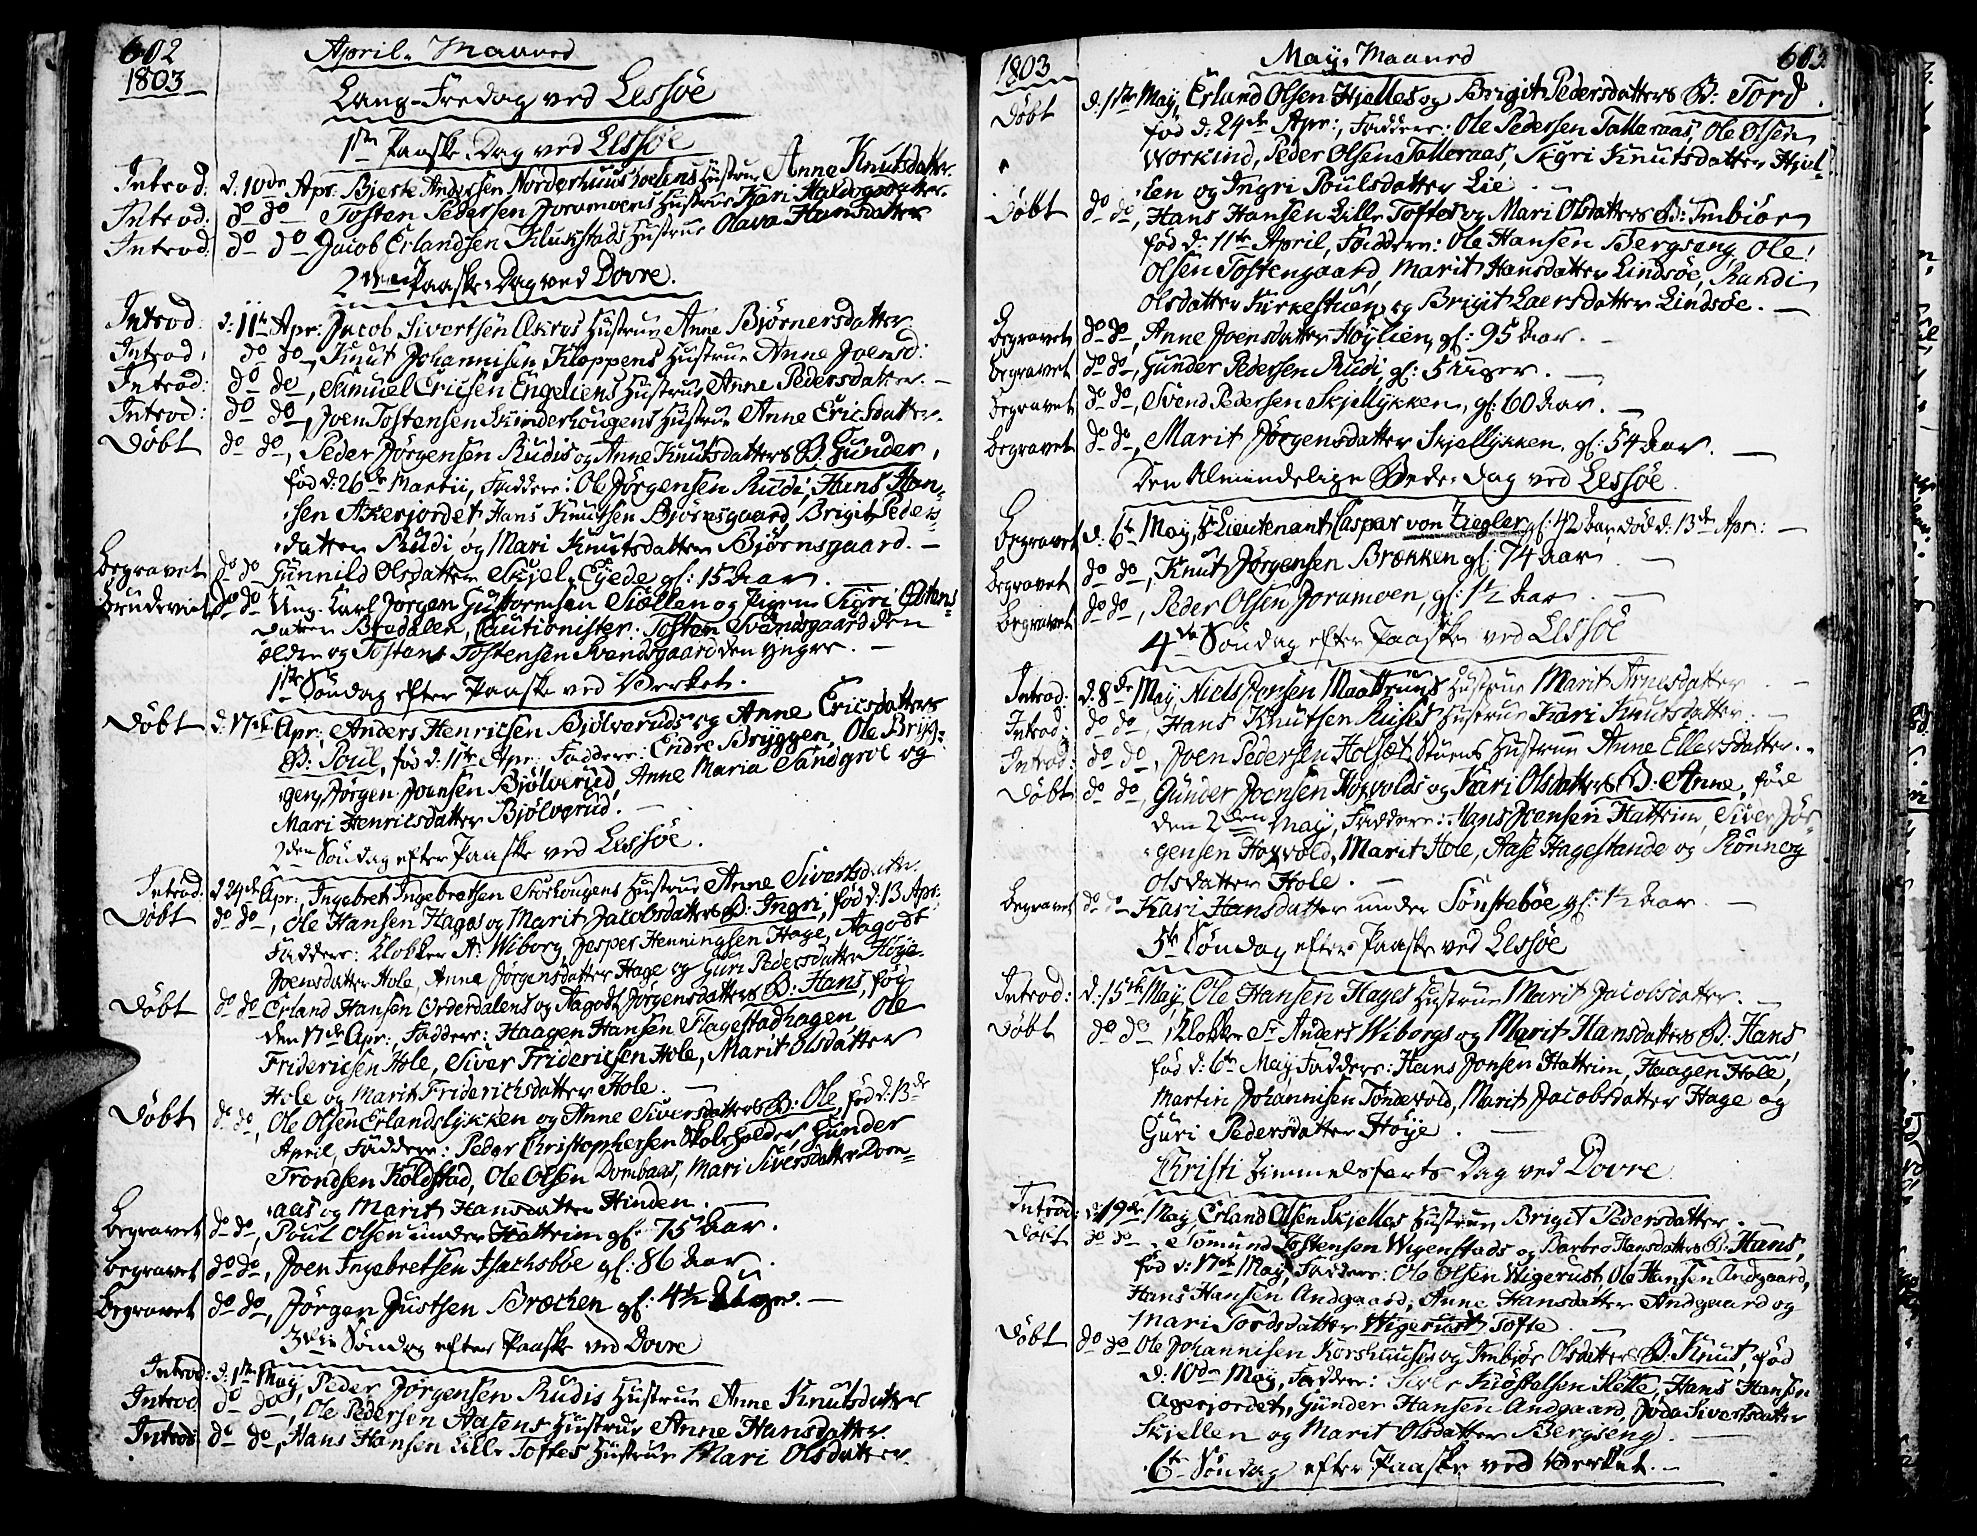 602
April Maaned
1803
Lang-Fredag ved Lessøe
1ste Paaske Dag ved Lessøe
Introd: d: 10de Apr. Bjerte Andersen Norderhuus Hustrue Anne Knutsdatter
Introd: do do Tosten Pedersen Joramoens Hustrue Kari Haldogsdatter
Introd: do do Jacob Erlandsen Kluxstads Hustrue Olava Hansdatter
2den Paaske Dag ved Dovre.
Introd: d: 11te Apr: Jacob Sivertsen Hustrue Anne Bjørnersdatter
Introd: do do, Knut Johannisen Kloppens Hustrue Anne Joensd:
Introd: do do, Samuel Ericsen Engeliens Hustrue Anne Pedersdatter. –
Introd: do do, Joen Tostensen Hustrue Anne Ericsdatter.
Døbt do do, Peder Jørgensen Rudis og Anne Knutsdatters B: Gunder,
fød d: 26de Martii, Faddere: Ole Jørgensen Rudi, Hans Han-
sen Akerjordet Hans Knutsen Bjørnsgaard, Brigit Peders-
datter Rudi og Mari Knutsdatter Bjørnsgaard. –
Begravet do do Gunnild Olsdatter Skjel Eyede gl: 15 Aar.
Brudeviet do do Ung-Karl Jørgen Guttormsen Siøllen og Pigen Sigri Ostens-
datter Bredalen, Cautionister: Tosten Svendsgaard den
ældre og Tosten Tostensen Svendsgaard den yngre. –
1ste Søndag efter Paaske ved Verket.
Døbt d: 17de Apr: Anders Henricsen Bjølveruds og Anne Ericsdatters
B: Poul, fød d: 11te Apr: Faddere: Endre Bryggen, Ole Bryg-
gen, Jørgen Joensen Bjølverud, Anne Maria Sandgroe og
Mari Henricsdatter Bjølverud. –
2den Søndag efter Paaske ved Lessøe.
Introd: d 24de Apr:, Ingebret Ingebretsen Storhougens Hustrue Anne Sivertsdatter.
Døbt do do, Ole Hansen Hages og Marit Jacobsdatters B: Ingri, fød d: 13 Apr:
Faddere: Klokker A: Wiborg, Jesper Henningsen Hage, Aagodt
Joensdatter Hole, Anne Jørgensdatter Hage og Guri Pedersdatter Høye.
Døbt do do Erland Hansen Orderdalens og Aagodt Jørgensdatters B: Hans, fød
den 17de Apr:, Faddere: Haagen Hansen Flagestadhagen, Ole
Fridericsen Hole, Siver Fridericsen Hole, Marit Olsdatter
Hole og Marit Friderichsdatter Hole. –
Døbt do do, Ole Olsen Erlandslykken og Anne Siversdatters B: Ole, fød d: 13de
April, Faddere: Peder Christophersen Skoleholder, Gunder
Trondsen Koldstad, Ole Olsen Dombaas, Mari Siversdatter Dom-
aas og Marit Hansdatter Hinden. –
Begravet do do, Poul Olsen under Hattrim gl: 75 Aar.
Begravet do do, Joen Ingebretsen Isachsbøe gl: 86 Aar.
Begravet do do, Jørgen Justsen Bræchen gl: 4½ Uge. –
3die Søndag efter Paaske ved Dovre
Introd: d: 1ste May, Peder Jørgensen Rudis Hustrue Anne Knutsdatter
Introd do do, Ole Pedersen Aasens Hustrue Anne Hansdatter
Introd do do, Hans Hansen Lille Toftes Hustrue Mari Olsdatter.
603
1803
May Maaned
Døbt d: 1ste May, Erland Olsen Hjelles og Brigit Pedersdatters B: Tord.
fød d: 24de Apr:, Faddere: Ole Pedersen Talleraas, Ole Olsen
Workind, Peder Olsen Talleraas, Sigri Knutsdatter Hjel-
len og Ingri Poulsdatter Lie. –
Døbt do do, Hans Hansen Lille Toftes og Mari Olsdatters B: Imbiør
fød d: 11te April, Faddere: Ole Hansen Bergseng, Ole
Olsen Tostengaard, Marit Hansdatter Lindsøe, Randi
Olsdatter Kirkestuen og Brigit Laersdatter Lindsøe. –
Begravet do do, Anne Joensdatter Høylien, gl: 95 Aar. –
Begravet do do, Gunder Pedersen Rudi, gl: 5 Uger. –
Begravet do do, Svend Pedersen Skjellykken, gl: 60 Aar. –
Begravet do do, Marit Jørgensdatter Skjellykken, gl: 54 Aar. –
Den Almindelige Bede-Dag ved Lessøe.
Begravet d: 6te May, Lieutenant Caspar von Ziegler gl: 42 Aar død d: 13de Apr: –
Begravet do do, Knut Jørgensen Brækken gl: 74 Aar –
Begravet do do, Peder Olsen Joramoen, gl: 1½ Aar. –
4de Søndag efter Paaske ved Lessøe
Introd: d: 8de May, Niels Jonsen Hustrue Marit Arnesdatter –
Introd: do do, Hans Knutsen Hustrue Kari Knutsdatter. –
Introd: do do, Joen Pedersen Holsæt Stuens Hustrue Anne Ellersdatter. –
Døbt do do, Gunder Joensen Hoxvolds og Kari Olsdatters B: Anne, fød
den 2den May, Faddere: Hans Joensen Hattrim, Siver Jør-
gensen Hoxvold, Marit Hole, Aase Hagestande og Rønnog
Olsdatter Hole. –
Begravet do do Kari Hansdatter under Sønstebøe, gl: ½ Aar. –
5te Søndag efter Paaske ved Lessøe
Introd: d: 15de May, Ole Hansen Hages Hustrue Marit Jacobsdatter. –
Døbt do do Klokker Sr Anders Wiborgs og Marit Hansdatters B: Hans,
fød d: 6te May, Faddere: Hans Jonsen Hattrim, Haagen Hole,
Martin Johannisen Tøndevold, Marit Jacobsdatter Hage og
Guri Pedersdatter Høye. –
Christi Himmelfarts Dag ved Dovre
Introd: d: 19de May, Erland Olsen Skjelles Hustrue Brigit Pedersdatter. –
Døbt do do Tostensen Wigenstads og Barbro Hansdatters B: Hans,
fød d: 17de May, Faddere: Ole Olsen Wigerust, Ole Hansen Andgaard,
Hans Hansen Andgaard, Anne Hansdatter Andgaard og
Mari Tordsdatter Wigerust Tofte.
Døbt do do Ole Johannisen Korshuusen og Imbjør Olsdatters B: Knut, fød
d: 10de May, Faddere: Hans Hansen
Agerjordet, Gunder Hansen Andgaard, Joda Sivertsdatter
Skjellen og Marit Olsdatter Bergseng. –
6te Søndag efter Paaske ved Verket. –